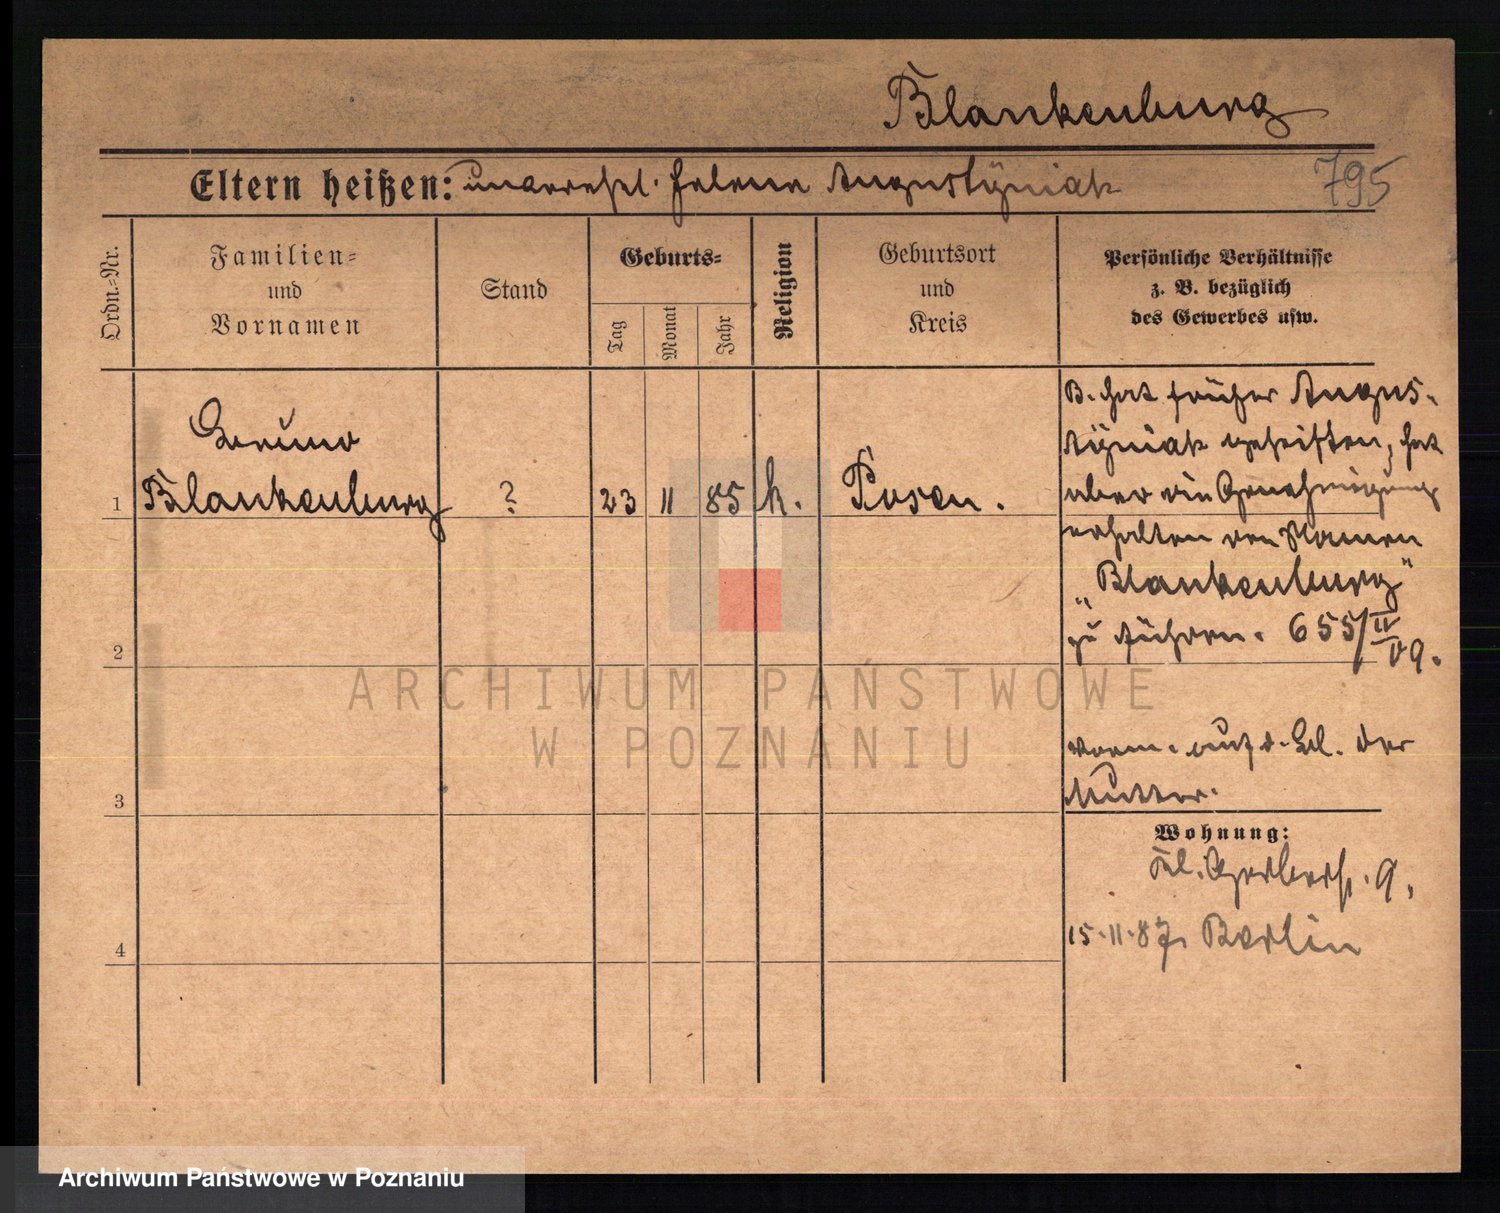 Blankenburg
Eltern heißen: unverehel. Helene Augustÿniak 795
Ordn.=Nr.
Familien=
und
Vornamen
Stand
Geburts=
Tag
Monat
Jahr
Religion
Geburtsort
und
Kreis
Persönliche Verhältnisse
z. B. bezüglich
des Gewerbes usw.
Bruno
1 Blankenburg ? 23 11 85 k. Posen.
B. hat früher Augus-
tÿniak geheißen, hat
aber die Genehmigung
erhalten den Namen
„Blankenburg"
zu führen. 655/IV
09.
2
3
4
vorm. auf d. Bl. der
Mutter.
Wohnung:
Kl. Gerberst. 9.
15.11.87. Berlin
ARCHIWUM PAŃSTWOWE
W POZNANIU
Archiwum Państwowe w Poznaniu